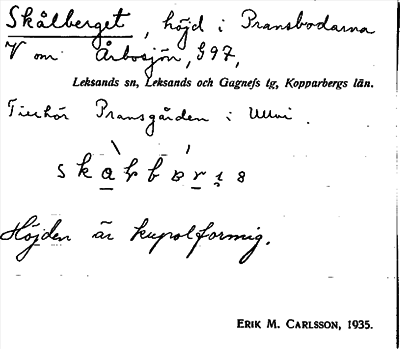 Skålberget, höjd i Pransbodarna
V om Årbosjön, G97,
Leksands sn, Leksands och Gagnefs tg, Kopparbergs län.
Tillhör Pransgården i Ullvi.
Höjden är kupolformig.
ERIK M. CARLSSON, 1935.